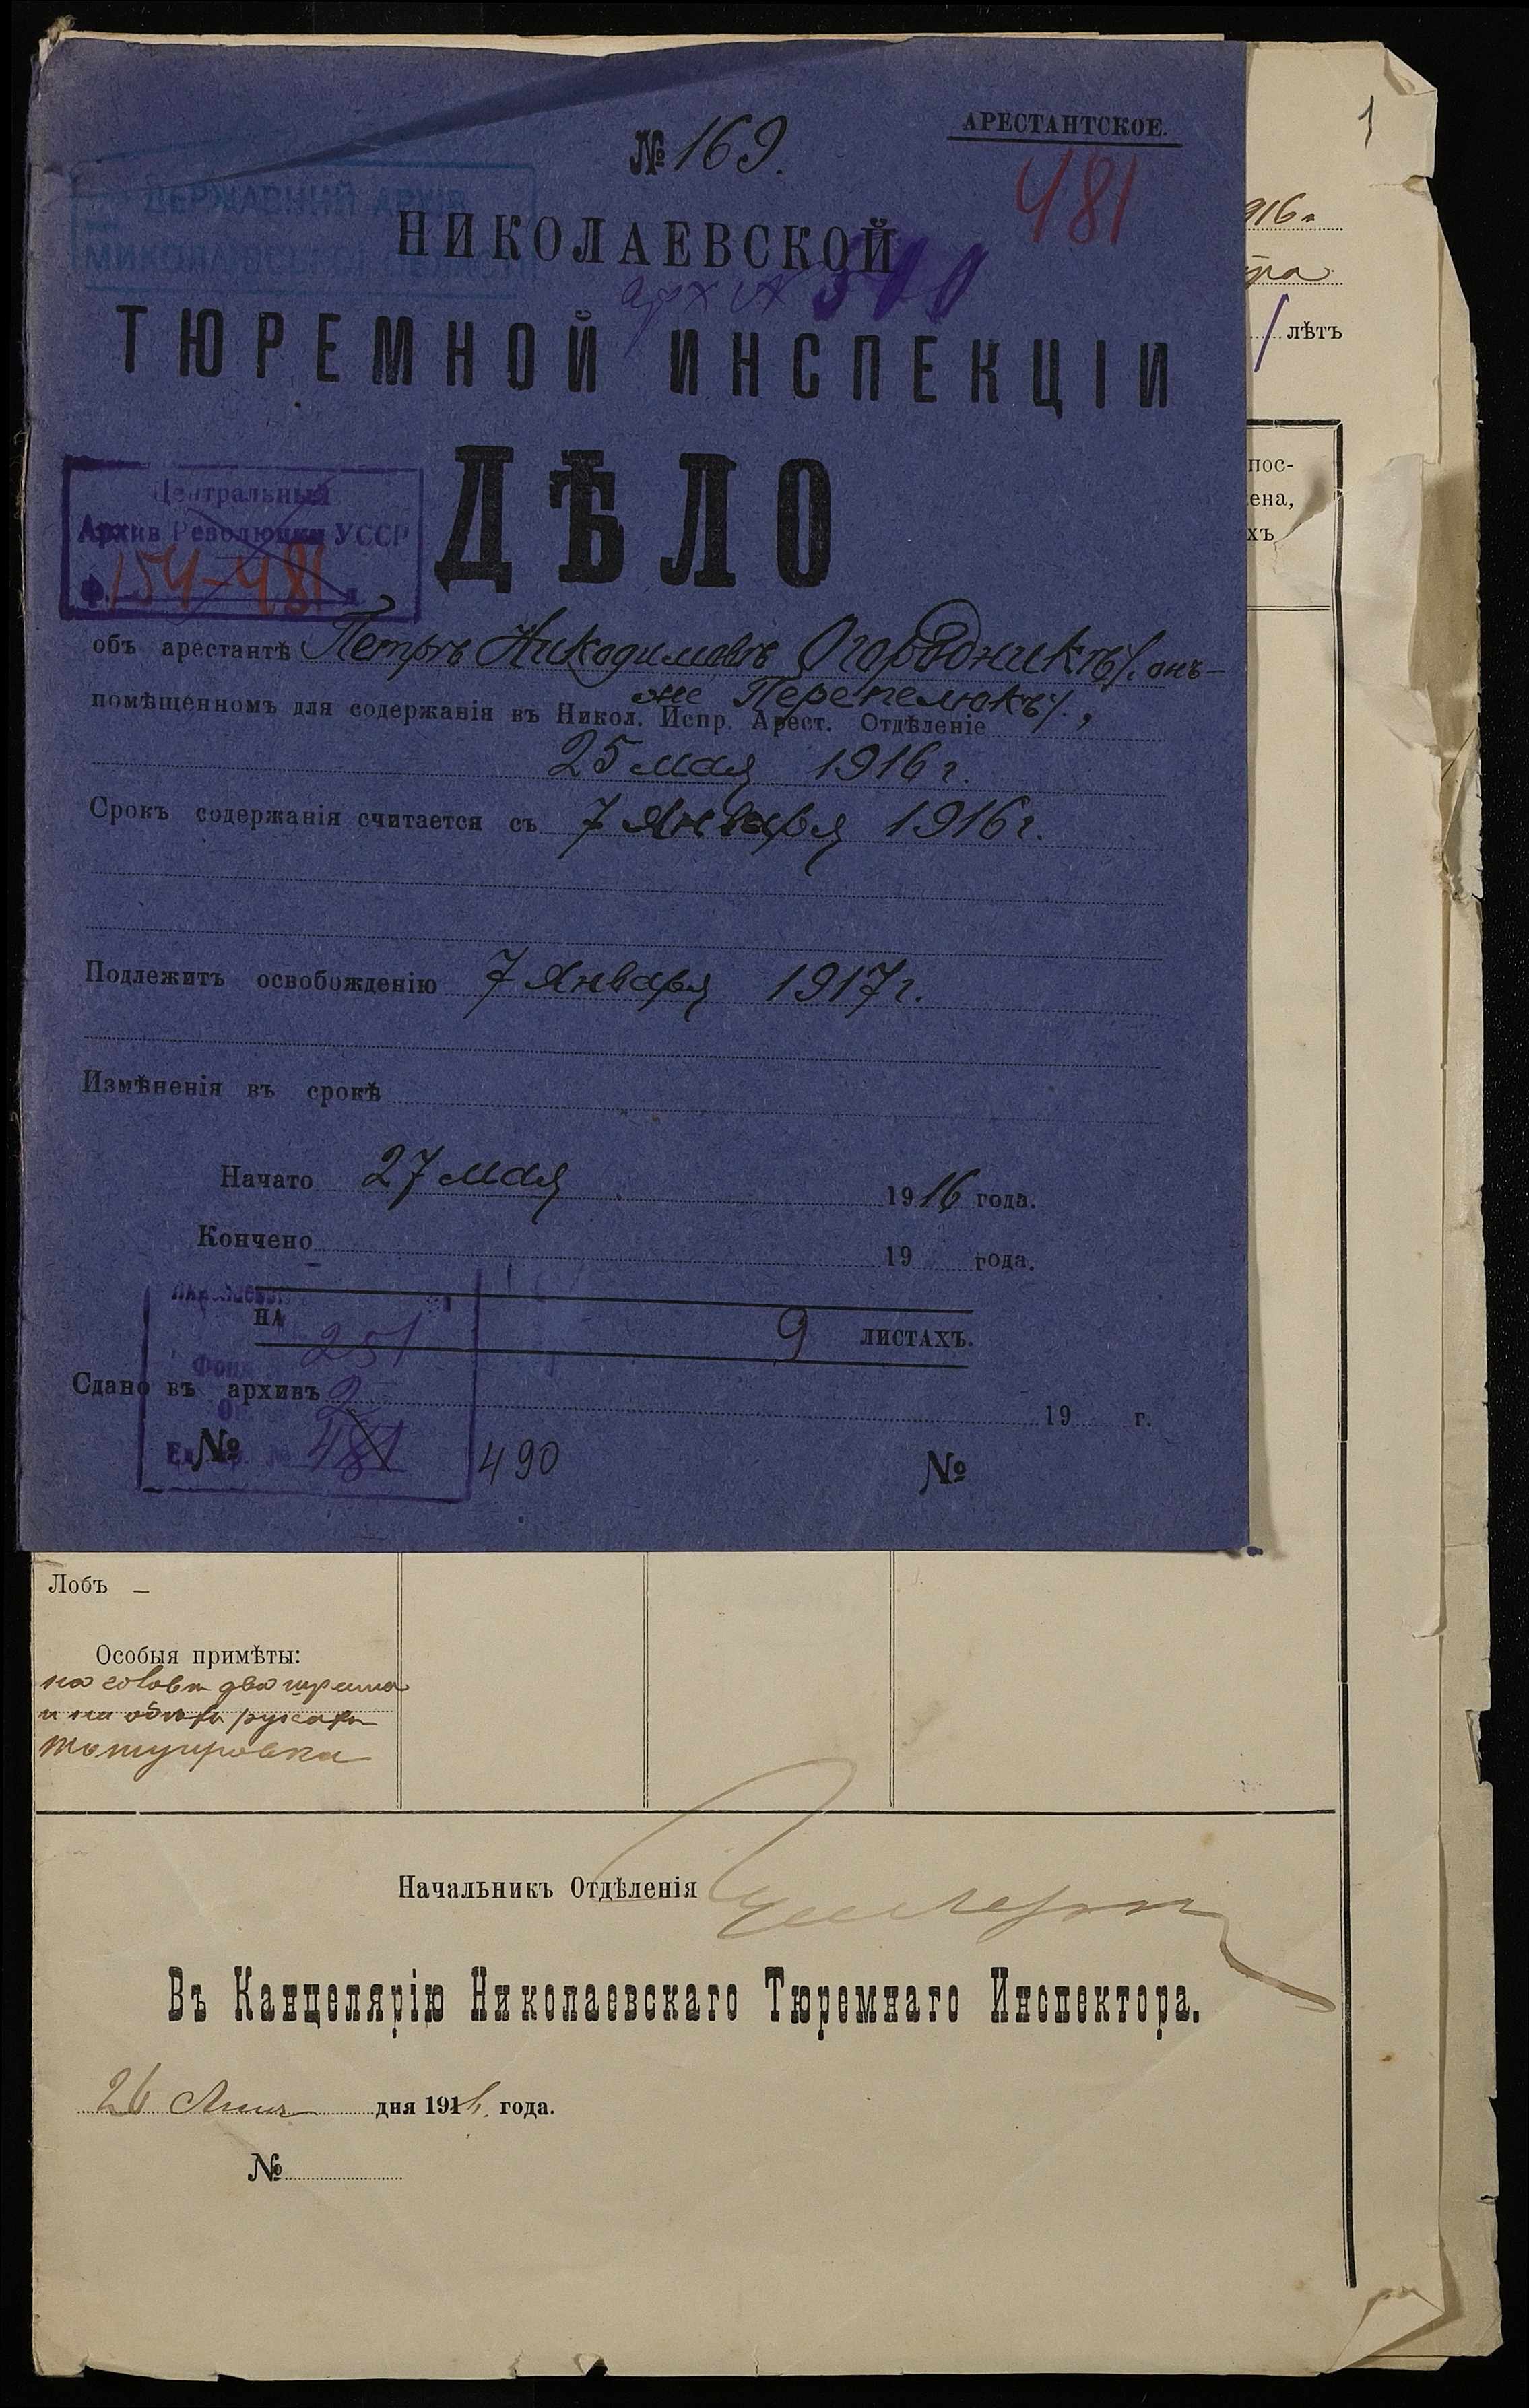 1
АРЕСТАНТСКОЕ.
№ 169.
481
ДЕРЖАВНИЙ АРХІВ
МИКОЛАЇВСЬКОЇ ОБЛАСТІ
НИКОЛАЕВСКОЙ
916 г
арх №
ТЮРЕМНОЙ ИНСПЕКЦІИ
лѣтъ
ДѢЛО
Центральный
Архив Революции УССР
Ф. 154-481
пос-
ена,
хъ
объ арестантѣ Петръ Никодимовъ Огородникъ, онъ-
же Перепелюкъ,
помѣщенномъ для содержанія въ Никол. Испр. Арест. Отдѣленіе
25 мая 1916 г.
Срокъ содержанія считается съ 7 Января 1916 г.
Подлежитъ освобожденію 7 Января 1917 г.
Измѣненія въ срокѣ
Начато 27 мая 1916 года.
Кончено 19 года.
НА 9 ЛИСТАХЪ.
Фонд 251
Сдано въ архивъ 19 г.
2
№ 481 490 №
Лобъ –
Особыя примѣты:
на головѣ два шрама
и на обѣихъ рукахъ
татуировка
Начальникъ Отдѣленія
Въ Канцелярію Николаевскаго Тюремнаго Инспектора.
26 дня 1916 года.
№